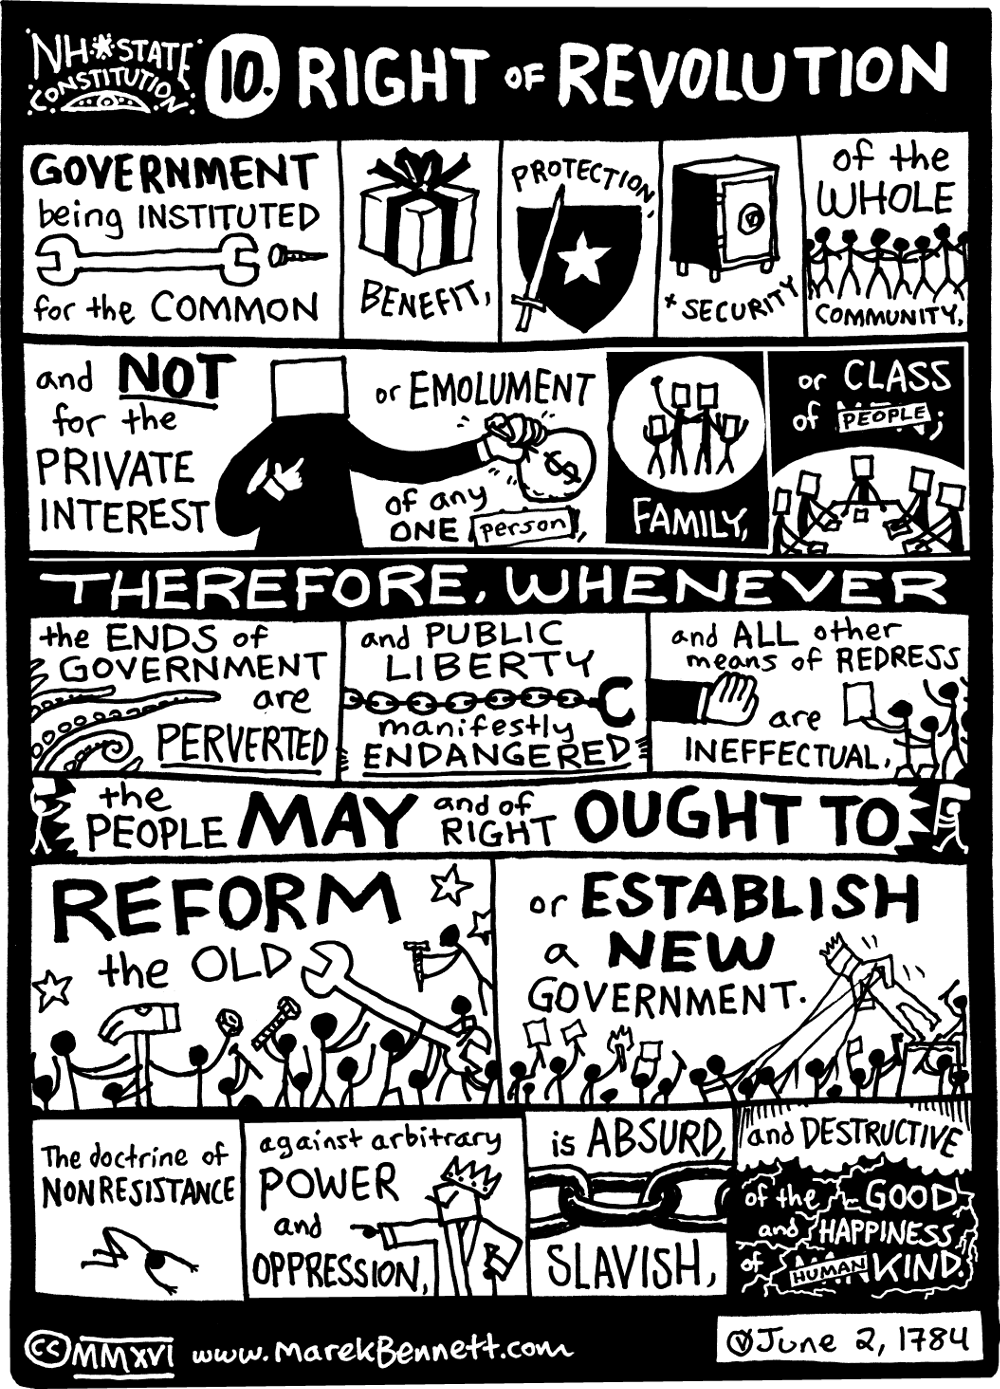 NH★STATE
CONSTITUTION
10. RIGHT OF REVOLUTION
GOVERNMENT
being INSTITUTED
for the COMMON
BENEFIT,
PROTECTION,
+ SECURITY
of the
WHOLE
COMMUNITY,
and NOT
for the
PRIVATE
INTEREST
or EMOLUMENT
$
of any
ONE person,
FAMILY,
or CLASS
of PEOPLE;
THEREFORE, WHENEVER
the ENDS of
GOVERNMENT
are
PERVERTED
and PUBLIC
LIBERTY
manifestly
ENDANGERED
and ALL other
means of REDRESS
are
INEFFECTUAL,
the
PEOPLE
MAY
and of
RIGHT
OUGHT TO
REFORM
the OLD
or ESTABLISH
a NEW
GOVERNMENT.
The doctrine of
NONRESISTANCE
against arbitrary
POWER
and
OPPRESSION,
is ABSURD,
SLAVISH,
and DESTRUCTIVE
of the GOOD
and HAPPINESS
of HUMANKIND.
cc MMXVI www.MarekBennett.com
June 2, 1784